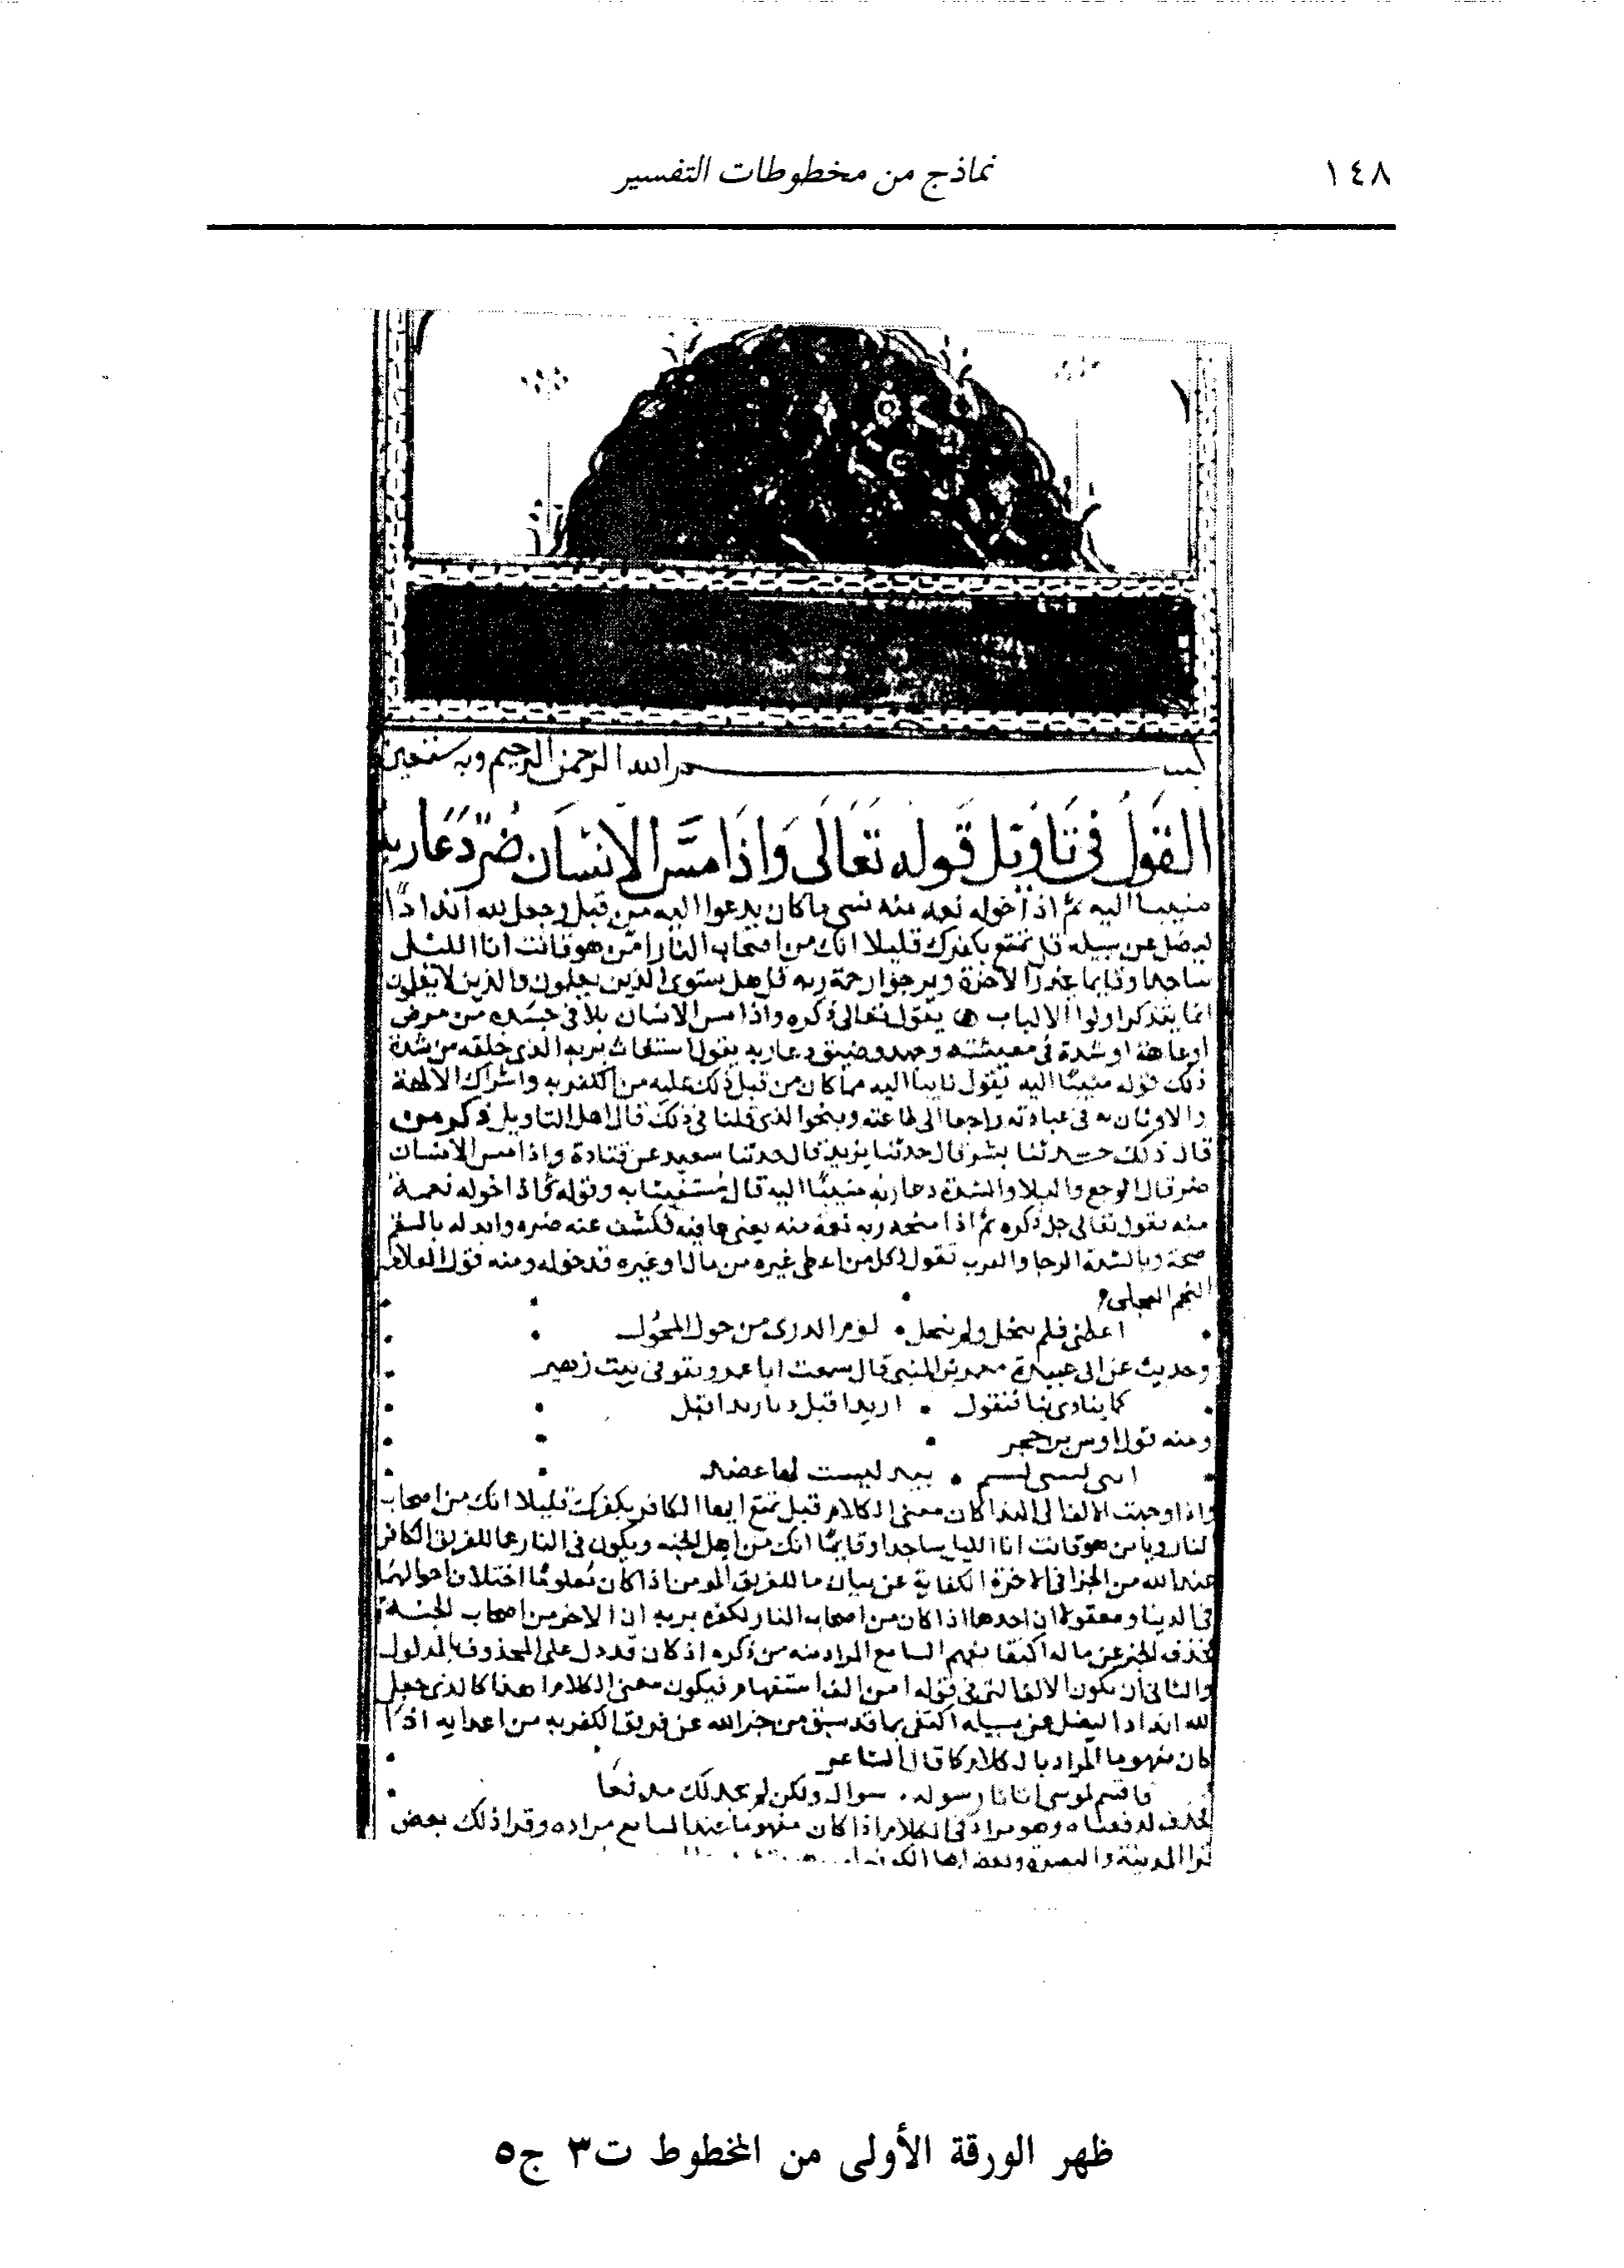 ١٤٨
نماذج من مخطوطات التفسير
بسم الله الرحمن الرحيم وبه نستعين
القول في تأويل قوله تعالى وإذا مس الإنسان ضر دعا ربه
منيبا اليه ثم اذا خوله نعمة منه نسي ما كان يدعوا اليه من قبل وجعل لله أندادًا
ليضل عن سبيله قل تمتع بكفرك قليلا انك من اصحاب النار امن هو قانت اناا الليل
ساجدا وقايما يحذر الاخرة ويرجوا رحمة ربه قل هل يستوى الذين يعلمون والذين لا يعلمون
انما يتذكر اولوا الالباب يقول تعالى ذكره واذا مس الانسان بلا في جسده من مرض
او عاهة او شدة في معيشته وجهد وضيق دعا ربه يقول استغاث بربه الذى خلقه من شدة
ذلك قوله منيبًا اليه يقول تايبا اليه مما كان من قبل ذلك عليه من الكفر به واشراك الالهة
والاوثان به فى عبادته راجعا الى طاعته وبنحوا الذى قلنا فى ذلك قال اهل التاويل ذكر من
قال ذلك حدثنا بشر قال حدثنا يزيد قال حدثنا سعيد عن قتادة واذا مس الانسان
ضر قال الوجع والبلا والشدة دعا ربه منيبًا اليه قال مستغيثا به وقوله ثم اذا خوله نعمة
منه يقول تعالى جل ذكره ثم اذا منحه ربه نعمة منه يعنى عافية فكشف عنه ضره وابدله بالسقم
صحة وبالشدة الرخا والعرب تقول لكل من اعطى غيره من مال او غيره قد خوله ومنه قول
النجم العجلى
اعطى فلم يبخل ولم يبخل كوم الذرى من خول المخول
وحديث عن ابى عبيدة معمر بن المثنى قال سمعت ابا عمرو يقول فى بيت زهير
ومنه قول اوس بن حجر
بيد ليست لها عضد
واذا وجهت الالف الى الندا كان معنى الكلام قيل تمتع ايها الكافر بكفرك قليلا انك من اصحاب
النار ويا من هو قانت اناا الليل ساجدا وقايمًا انك من اهل الجنة ويكون فى النار عما للفريق الكافر
عند الله من الجزا فى الاخرة الكفاية عن بيان ما للفريق المومن اذا كان معلومًا اختلاف احوالهما
فى الدنيا ومعقولا ان احدهما اذا كان من اصحاب النار لكفره بربه ان الاخر من اصحاب الجنة
فحذف الخبر عن ما له اكتفا بفهم السامع المراد منه من ذكره اذ كان قد دل على المحذوف بالمدلول
والثانى ان يكون الالف التى فى قوله امن الف استفهام فيكون معنى الكلام اهذا كالذى جعل
لله اندادا ليضل عن سبيله اكتفى بما قد سبق من خبر الله عن فريق الكفر به من اعدايه اذ
كان مفهوما المراد بالكلام كما قال الشاعر
فاقسم لو شى اتانا رسوله سواك ولكن لم نجد لك مدفعًا
فحذف لدفعناه وهو مراد فى الكلام اذا كان مفهوما عند السامع مراده وقرا ذلك بعض
قرا المدينة والبصرة
ظهر الورقة الأولى من المخطوط ت٣ ج٥